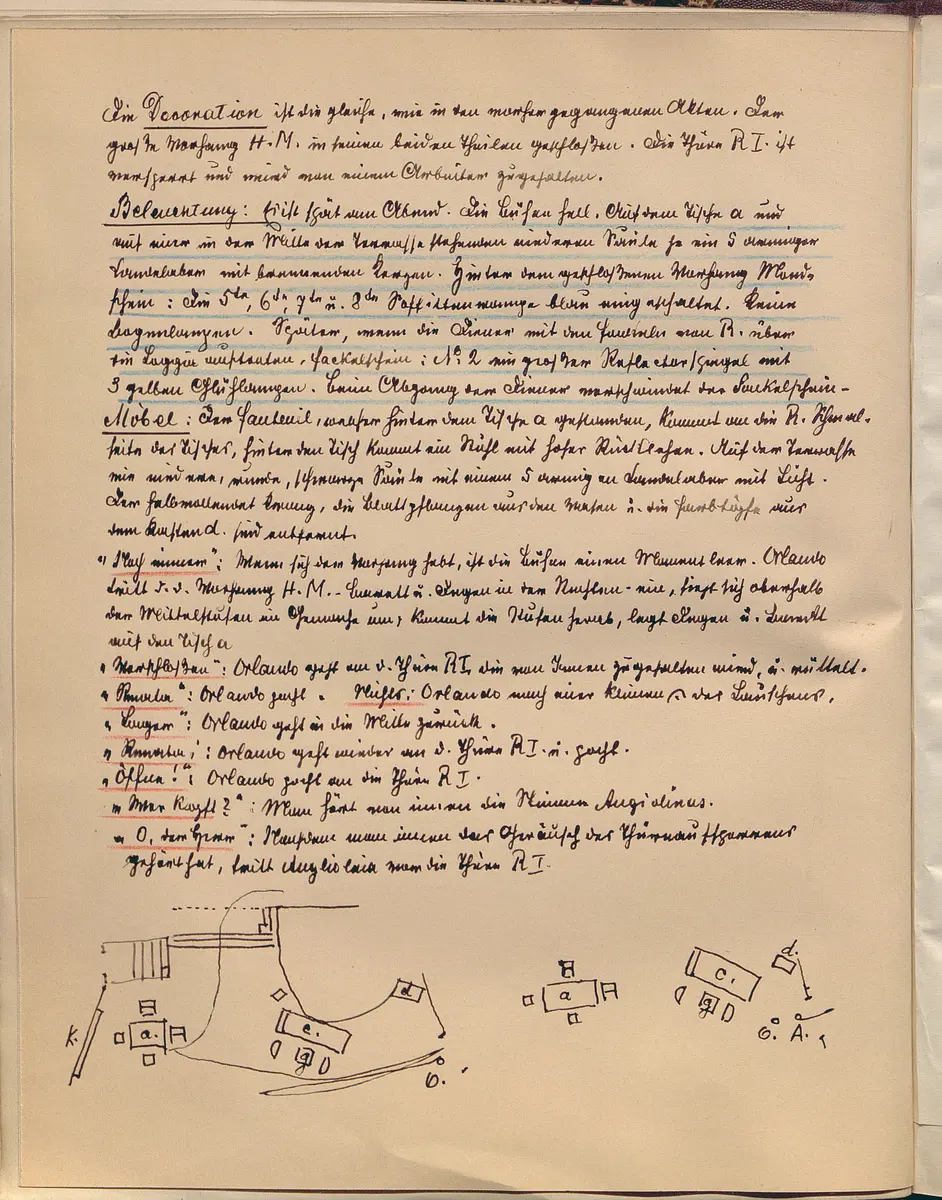 Die Decoration ist die gleiche, wie in den vorhergegangenen Akten. Der
große Vorhang H. M. in seinen beiden Theilen geschloßen. Die Thüre R I. ist
versperrt und wird von einem Arbeiter zugehalten.
Beleuchtung: Es ist spät am Abend. Die Bühne hell. Auf dem Tische a und
auf einer in der Mitte der Terrasse stehenden niederen Säule je ein 5 armiger
Candelaber mit brennenden Kerzen. Hinter dem geschloßenen Vorhang Mond-
schein: Die 5te, 6te, 7te u. 8te Soffittenrampe blau eingeschaltet. Keine
Bogenlampen. Später, wenn die Diener mit den Fackeln von R. über
die Loggia auftreten, Fackelschein: No 2 ein großer Reflectorspiegel mit
3 gelben Glühlampen. Beim Abgang der Diener verschwindet der Fackelschein-
Möbel: Der Fauteuil, welcher hinter dem Tische a gestanden, kommt an die R. Schmal-
seite des Tisches, hinter den Tisch kommt ein Stuhl mit hoher Rücklehne. Auf der Terrasse
eine niedere, runde, schwarze Säule mit einem 5 armigen Candelaber mit Licht.
Der halbvollendete Kranz, die Blattpflanzen aus den Vasen u. die Farbtöpfe aus
dem Kasten d. sind entfernt.
"Noch immer": Wenn sich der Vorhang hebt, ist die Bühne einen Moment leer. Orlando
tritt d. d. Vorhang H. M. - Barett u. Degen in der Rechten - ein, sieht sich oberhalb
der Mittelstufen im Gemache um, kommt die Stufen herab, legt Degen u. Barett
auf den Tisch a
"Verschloßen": Orlando geht an d. Thür R I, die von Innen zugehalten wird, u. rüttelt.
"Renata": Orlando pocht. Nichts: Orlando nach einer kleinen ⌢ des Lauschens.
"Länger": Orlando geht in die Mitte zurück.
"Renata!": Orlando geht wieder an d. Thüre R I. u. pocht.
"Öffne!": Orlando pocht an die Thür R I.
"Wer klopft?": Man hört von innen die Stimme Angiolinas.
"O, der Herr": Nachdem man innen das Geräusch des Thürenaufsperrens
gehört hat, tritt Angiolina vor die Thüre R I.
K. a. c. g d O.
a c. g d. O. A.